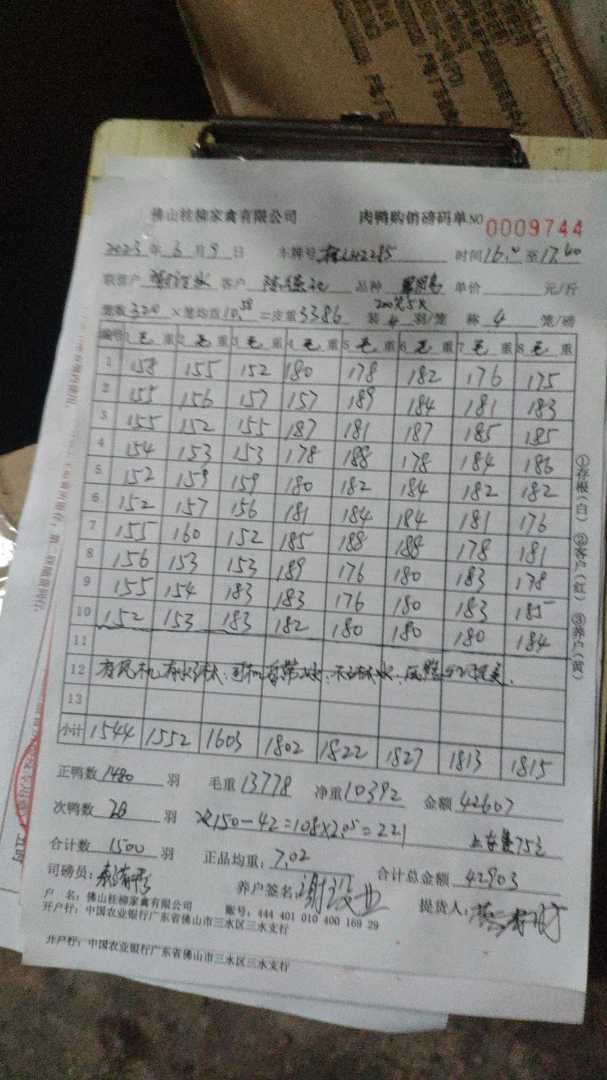 佛山桂柳家禽有限公司 肉鸭购销磅码单 NO 0009744
2023年6月9日 车牌号 时间16.0至17.40
联营户 客户 品种 单价 元/斤
笼数320×笼均重10.58=皮重3386 装4羽/笼 称4笼/磅
编号 1毛重 2毛重 3毛重 4毛重 5毛重 6毛重 7毛重 8毛重
1 158 155 152 180 178 182 176 175
2 155 156 157 157 189 184 181 183
3 155 152 155 187 181 187 185 185
4 154 153 153 178 188 178 184 186
5 152 159 159 180 182 184 182 182
6 152 157 156 181 184 184 181 176
7 155 160 152 185 188 188 178 181
8 156 153 153 189 176 180 183 178
9 155 154 183 183 176 180 183 185
10 152 153 183 182 180 180 180 184
11
12
13
小计 1544 1552 1603 1802 1822 1827 1813 1815
正鸭数1480羽 毛重13778 净重10392 金额42607
次鸭数20羽 150-42=108×2.05=221 75元
合计数1500羽 正品均重:7.02 合计总金额42903
司磅员: 养户签名: 提货人:
户 名:佛山桂柳家禽有限公司 账号:444 401 010 400 169 29
开户行:中国农业银行广东省佛山市三水区三水支行
开户行:中国农业银行广东省佛山市三水区三水支行
①存根(白) ②客户(红) ③养户(黄)